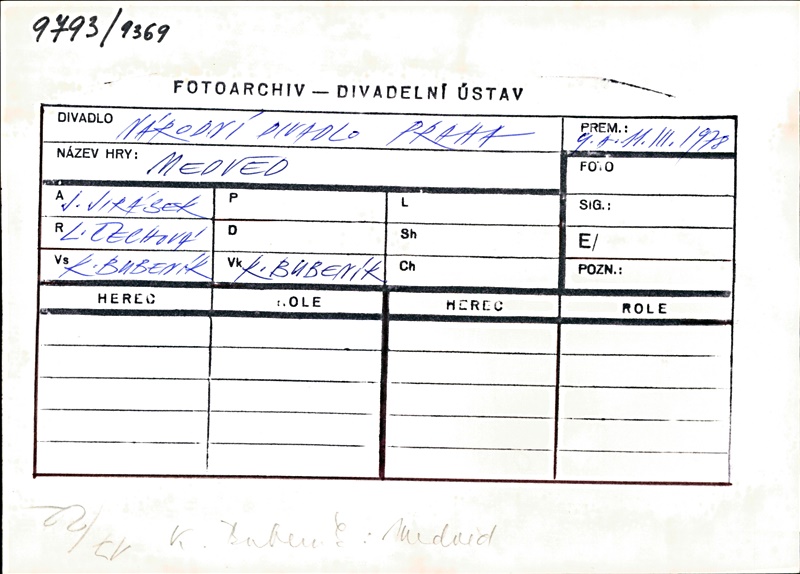 9793/9369
FOTOARCHIV — DIVADELNÍ ÚSTAV
DIVADLO NÁRODNÍ DIVADLO PRAHA
PREM.: 9. a 11. III. 1978
NÁZEV HRY: MEDVĚD
FOTO
A J. JIRÁSEK P L SIG.:
R L. ČECHOVÁ D Sh E/
Vs K. BUBENÍK Vk K. BUBENÍK Ch POZN.:
HEREC ROLE HEREC ROLE
K. Bubeník: Medvěd